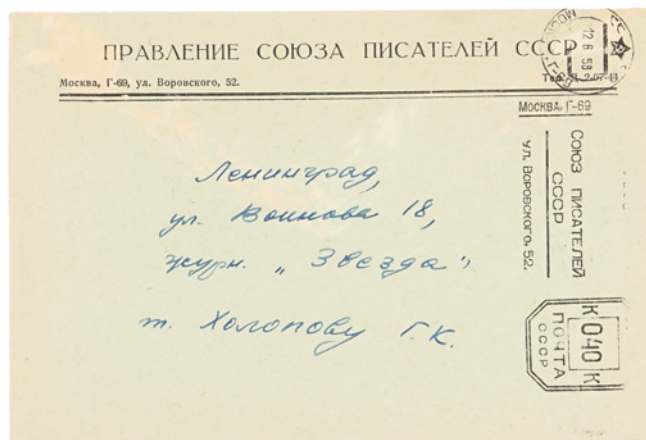 ПРАВЛЕНИЕ СОЮЗА ПИСАТЕЛЕЙ СССР
Москва, Г-69, ул. Воровского, 52.
Тел. Д 2-07-11
12 6 58
МОСКВА, Г-69
СОЮЗ ПИСАТЕЛЕЙ
СССР
УЛ. ВОРОВСКОГО, 52.
Ленинград,
ул. Воинова 18,
журн. „Звезда“
т. Холопову Г.К.
К 040 К
ПОЧТА
СССР